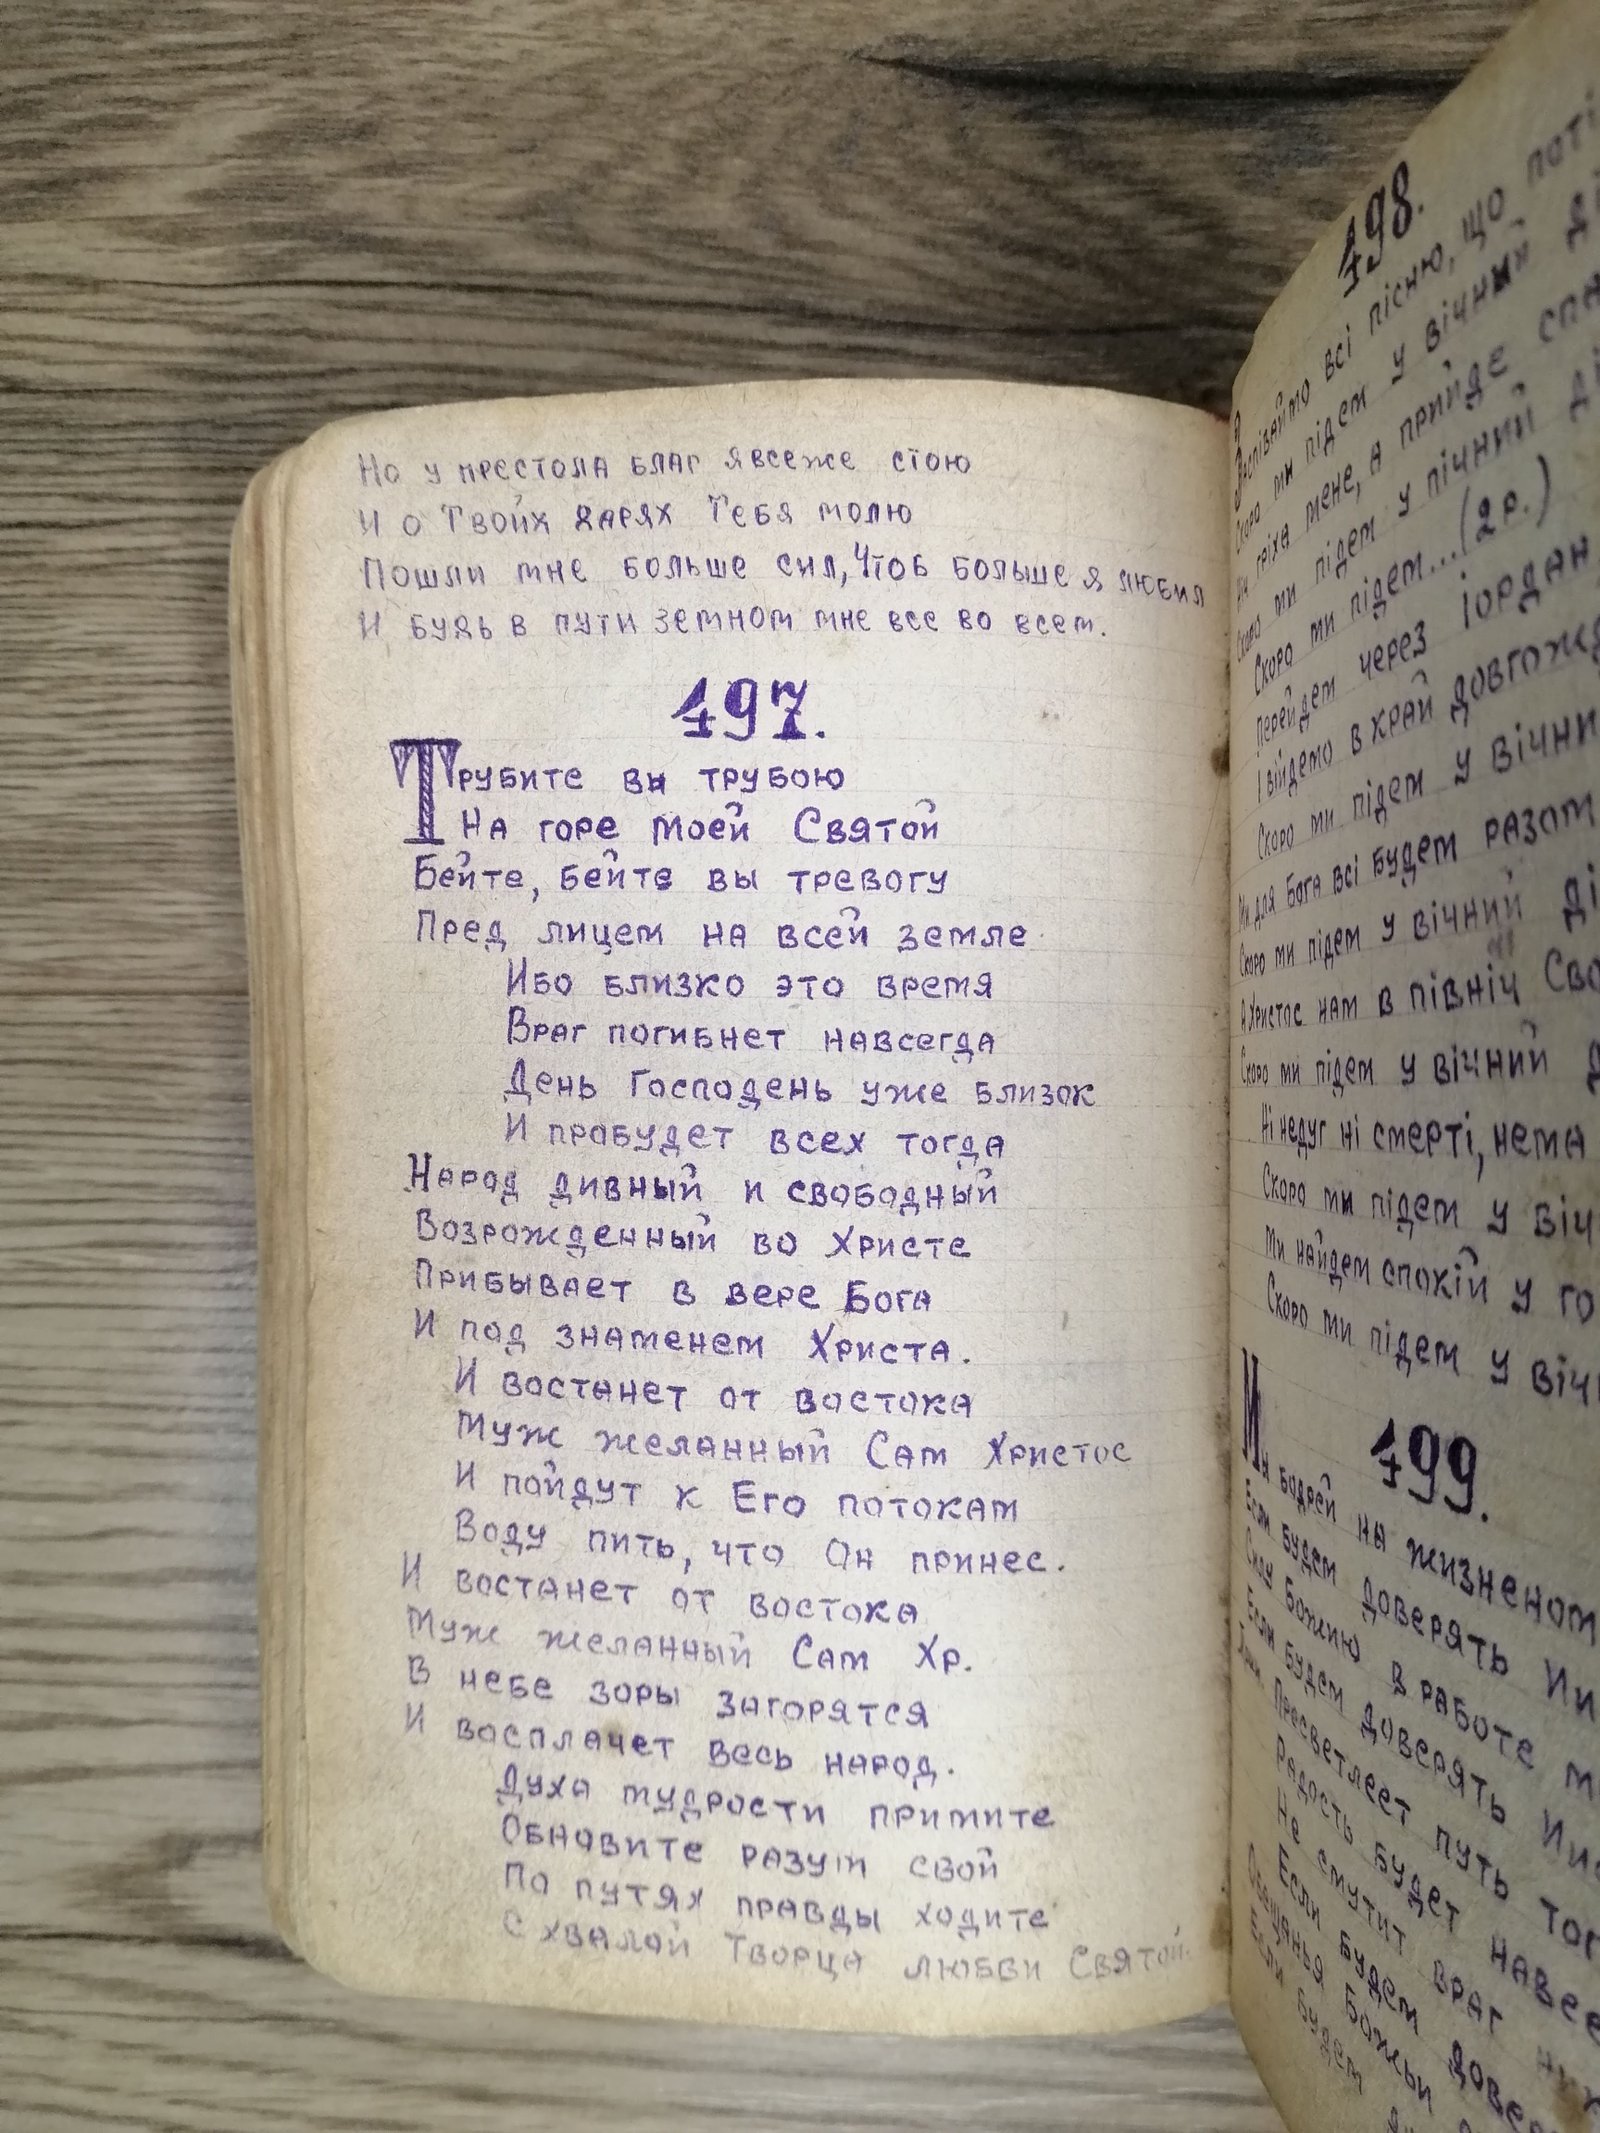 Но у престола благ я всеже стою
И о Твойх дарях Тебя молю
Пошли мне больше сил, Чтоб больше я любил
И будь в пути земном мне все во всем.
497.
Трубите вы трубою
На горе моей Святой
Бейте, бейте вы тревогу
Пред лицем на всей земле
Ибо близко это время
Враг погибнет навсегда
День Господень уже близок
И пробудет всех тогда
Народ дивный и свободный
Возрожденный во Христе
Прибывает в вере Бога
И под знаменем Христа.
И востанет от востока
Муж желанный Сам Христос
И пойдут к Его потокам
Воду пить, что Он принес.
И востанет от востока
Муж желанный Сам Хр.
В небе зоры загорятся
И восплачет весь народ.
Духа мудрости примите
Обновите разум свой
По путях правды ходите
С хвалой Творца любви Святой.
498.
Заспіваймо всі пісню, що поті
Скоро ми підем у вічний ді
гріха мене, а прийде спа
Скоро ми підем у пічний ді
Скоро ми підем... (2 р.)
перейдем через Іордан
І війдемо в край довгожд
Скоро ми підем у вічни
Ми для Бога всі будем разом
Скоро ми підем у вічний ді
А Христос нам в північ Сво
Скоро ми підем у вічний д
Ні недуг ні смерті, нема
Скоро ми підем у віч
Ми найдем спокій у го
Скоро ми підем у вічн
499.
Мы бодрей на жизненом
Если будем доверять Ии
Силу Божию в работе м
Если будем доверять Иис
Прип. Просветлеет путь тог
Радость будет навсе
Не смутит враг них
Если будем дове
Обещанья Божьи
Если будем